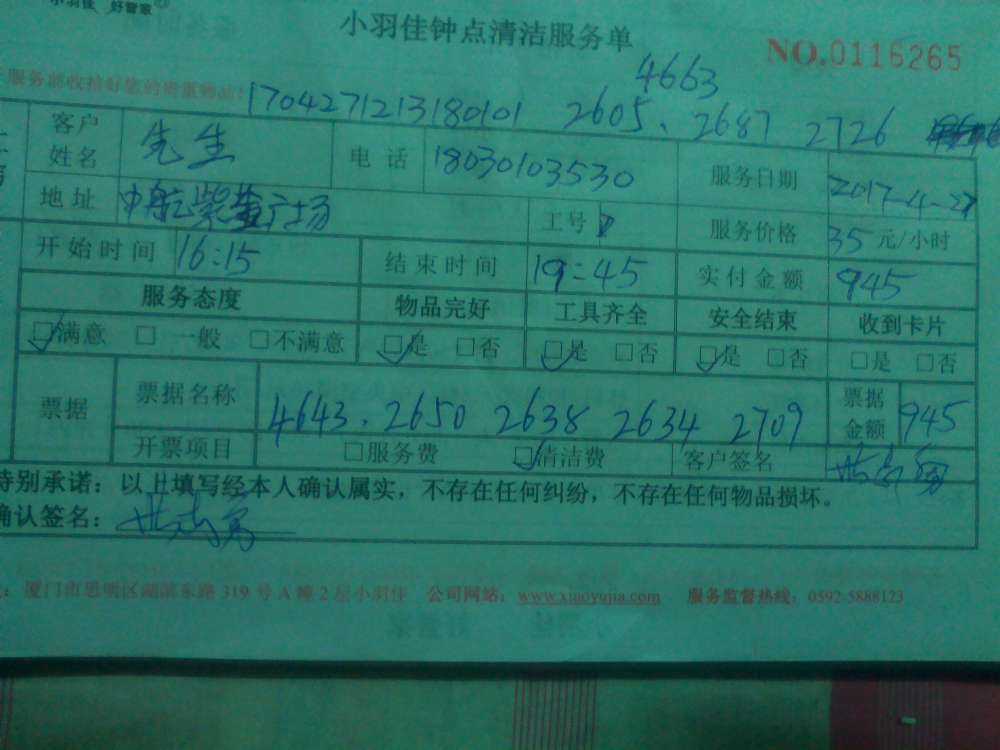 小羽佳 好管家
小羽佳钟点清洁服务单
NO.0116265
4663
服务前收拾好您的贵重物品!
1704271213180101 2605、2687 2726
客户姓名 先生 电话 18030103530 服务日期 2017-4-27
地址 中航紫金广场 工号 服务价格 35元/小时
开始时间 16:15 结束时间 19:45 实付金额 945
服务态度 物品完好 工具齐全 安全结束 收到卡片
☑满意 □一般 □不满意 ☑是 □否 ☑是 □否 ☑是 □否 □是 □否
票据 票据名称 4643、2650 2638 2634 2709 票据金额 945
开票项目 □服务费 ☑清洁费 客户签名
特别承诺：以上填写经本人确认属实，不存在任何纠纷，不存在任何物品损坏。
确认签名：
厦门市思明区湖滨东路319号A幢2层小羽佳 公司网站：www.xiaoyujia.com 服务监督热线：0592-5888123